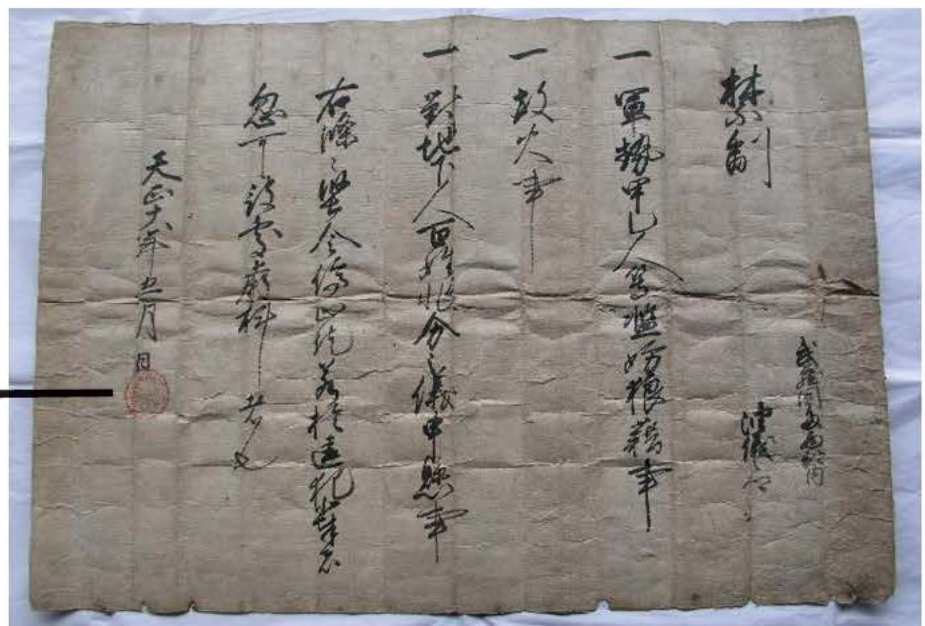 武蔵国多西郡内
禁制
一 軍勢甲乙人等濫妨狼藉事
一 放火事
一 對地下人百姓非分之儀申懸事
右條々堅令停止訖若於違犯輩者
忽可被處嚴科者也
天正十八年五月 日